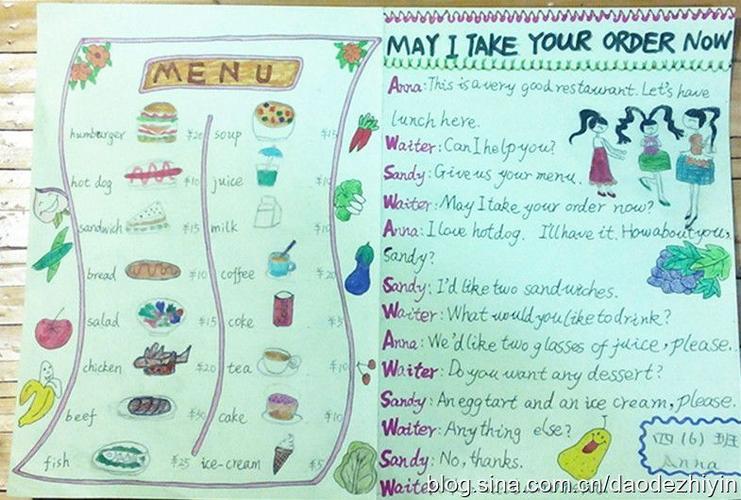 MENU
humburger ¥20
hot dog ¥10
sandwich ¥15
bread ¥10
salad ¥15
chicken ¥20
beef ¥50
fish ¥25
soup ¥15
juice ¥10
milk ¥10
coffee ¥20
coke ¥5
tea ¥10
cake ¥10
ice-cream ¥5
MAY I TAKE YOUR ORDER NOW
Anna: This is a very good restaurant. Let's have
lunch here.
Waiter: Can I help you?
Sandy: Give us your menu.
Waiter: May I take your order now?
Anna: I love hotdog. I'll have it. How about you,
Sandy?
Sandy: I'd like two sandwiches.
Waiter: What would you like to drink?
Anna: We'd like two glasses of juice, please.
Waiter: Do you want any dessert?
Sandy: An egg tart and an ice cream, please.
Waiter: Anything else?
Sandy: No, thanks.
Waiter:
四(6)班
Anna
blog.sina.com.cn/daodezhiyin